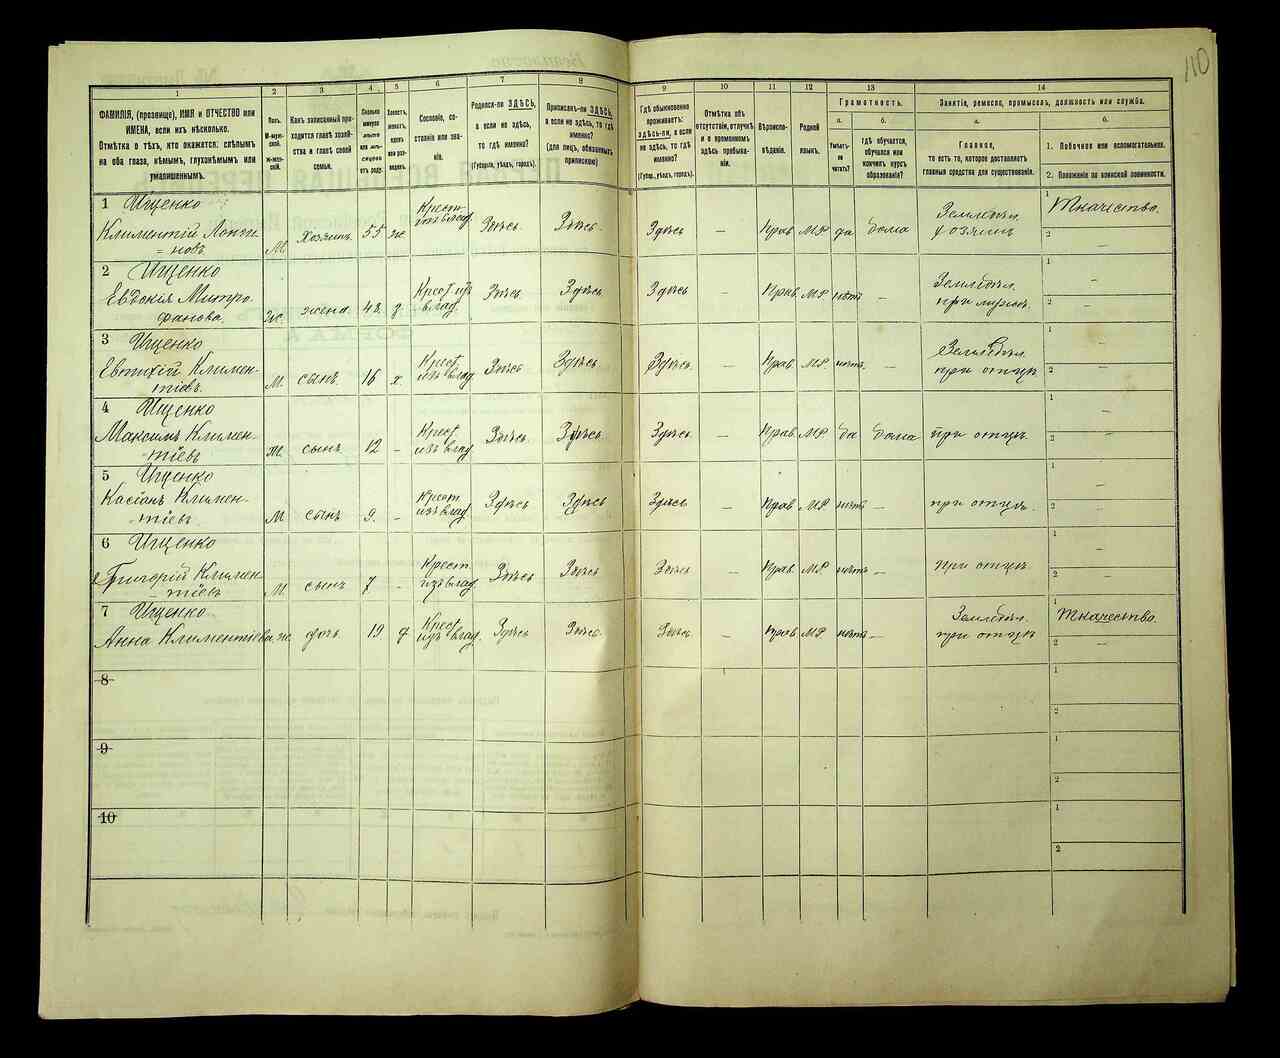 110
1
2
3
4
5
6
7
8
9
10
11
12
13
14
ФАМИЛІЯ, (прозвище), ИМЯ и ОТЧЕСТВО или
ИМЕНА, если ихъ нѣсколько.
Отмѣтка о тѣхъ, кто окажется: слѣпымъ
на оба глаза, нѣмымъ, глухонѣмымъ или
умалишеннымъ.
Полъ.
М-муж-
ской.
Ж-жен-
скій.
Какъ записанный при-
ходится главѣ хозяй-
ства и главѣ своей
семьи.
Сколько
минуло
лѣтъ
или мѣ-
сяцевъ
отъ роду.
Холостъ,
женатъ,
вдовъ
или раз-
веденъ.
Сословіе, со-
стояніе или зва-
ніе.
Родился-ли ЗДѢСЬ,
а если не здѣсь,
то гдѣ именно?
(Губернія, уѣздъ, городъ).
Приписанъ-ли ЗДѢСЬ,
а если не здѣсь, то гдѣ
именно?
(для лицъ, обязанныхъ
припискою)
Гдѣ обыкновенно
проживаетъ:
ЗДѢСЬ-ЛИ, а если
не здѣсь, то гдѣ
именно?
(Губер., уѣздъ, городъ).
Отмѣтка объ
отсутствіи, отлучкѣ
и о временномъ
здѣсь пребыва-
ніи.
Вѣроиспо-
вѣданіе.
Родной
языкъ.
Грамотность.
а.
б.
Умѣетъ-
ли
читать?
гдѣ обучается,
обучался или
кончилъ курсъ
образованія?
Занятіе, ремесло, промыселъ, должность или служба.
а.
б.
Главное,
то есть то, которое доставляетъ
главныя средства для существованія.
1. Побочное или вспомогательное.
2. Положеніе по воинской повинности.
1 Ищенко
Климентій
= новъ
М
Хозяинъ
55
ж
Крест
изъ влад
Здѣсь
Здѣсь
Здѣсь
—
Прав
МР
да
дома
Земледѣл.
хозяинъ
1 Ткачество.
2 —
2 Ищенко
Евдокія Митро
фанова
Ж.
жена
48
з
Крест изъ
влад
Здѣсь
Здѣсь
Здѣсь
—
Прав.
МР
нѣтъ
—
Земледѣл.
при мужѣ
1 —
2 —
3 Ищенко
Евтихій Климен-
тіевъ
М
сынъ
16
х
Крест
изъ влад
Здѣсь
Здѣсь
Здѣсь
—
Прав
МР
нѣтъ
—
Земледѣл.
при отцѣ
1 —
2 —
4 Ищенко
Максимъ Климен-
тіевъ
М.
сынъ
12
-
Крест
изъ влад
Здѣсь
Здѣсь
Здѣсь
—
Прав
МР
да
дома
при отцѣ
1 —
2 —
5 Ищенко
Касіанъ Климен-
тіевъ
М
сынъ
9.
-
Крест
изъ влад
Здѣсь
Здѣсь
Здѣсь
—
Прав
МР
нѣтъ
—
при отцѣ.
1 —
2 —
6 Ищенко
Григорій Климен
тіевъ
М.
сынъ
7
-
Крест
изъ влад
Здѣсь
Здѣсь
Здѣсь
—
Прав
МР
нѣтъ
—
при отцѣ
1 —
2 —
7 Ищенко
Анна Климентіева
ж.
дочь
19
д
Крест
изъ влад
Здѣсь
Здѣсь
Здѣсь
—
прав
МР
нѣтъ
—
Земледѣл.
при отцѣ
1 Ткачество.
2 —
8
1
2
9
1
2
10
1
2